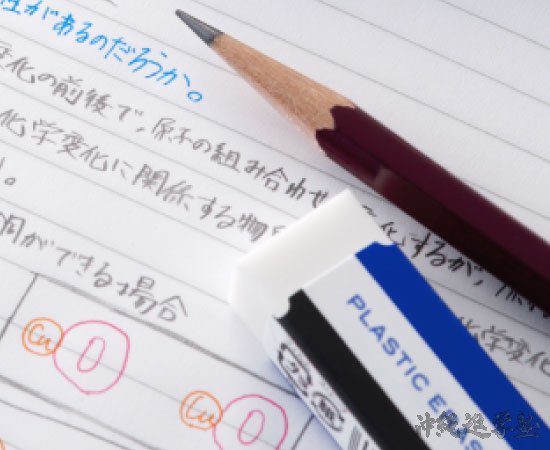 性があるのだろうか。
変化の前後で,原子の組み合わせ
化するが,
化学変化に関係する物
化学変化
。
銅ができる場合
Cu O
Cu O
PLASTIC ERAS
沖縄進学塾